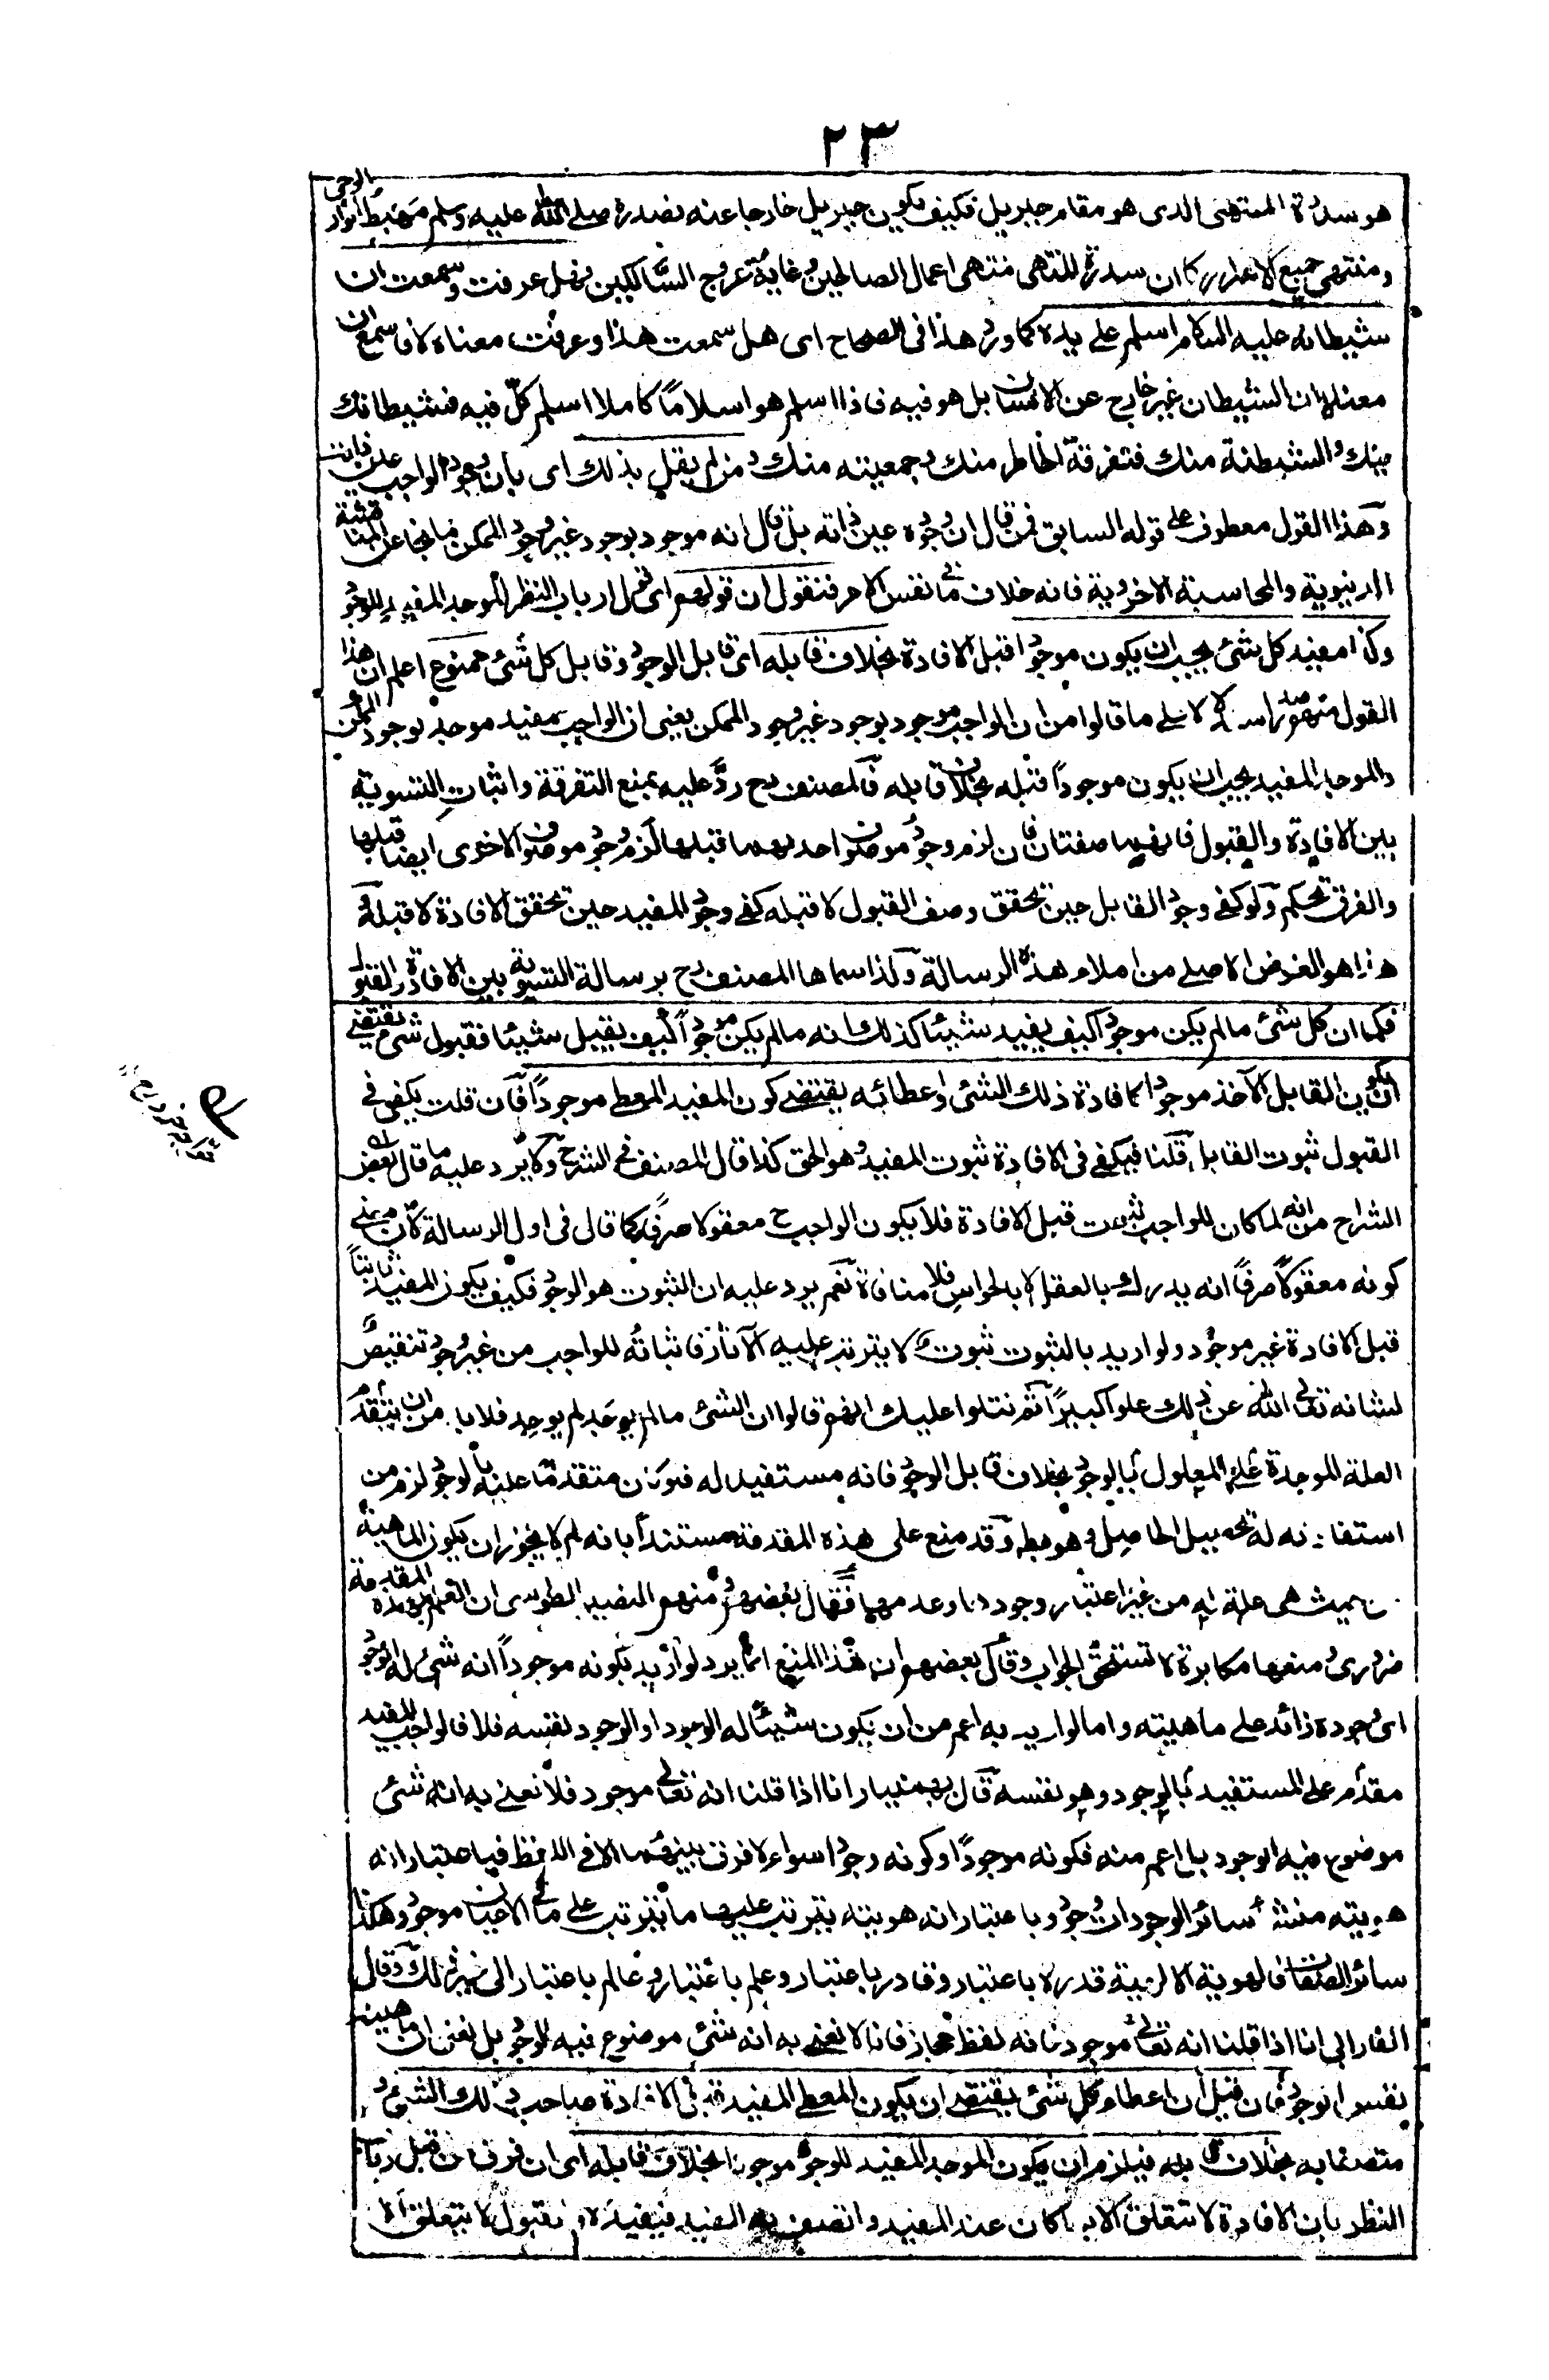 ٢٣
هو سدرة المنتهى الذى هو مقام جبريل فكيف يكون جبريل خارجا عنه فصدره صلى الله عليه وسلم مهبط انوار الوحى
ومنتهى جميع الاسرار كما ان سدرة المنتهى منتهى اعمال الصالحين وغاية عروج السالكين فهل عرفت وسمعت ان
شيطانه عليه السلام اسلم على يده كما ورد هذا فى الصحاح اى هل سمعت هذا وعرفت معناه لا فاسمع ان
معناه ان الشيطان غير خارج عن الانسان بل هو فيه فاذا اسلم هو اسلاما كاملا اسلم كل فيه فشيطانك
منك والشيطنة منك فتفرقة الخاطر منك وجمعيته منك ومن لم يقل بذلك اى بان وجود الواجب عين ذاته
وهذا القول معطوف على قوله السابق فمن قال ان وجوده عين ذاته بل قال انه موجود بوجود غير وجود الممكن ما نجا عن المناقشة
الدنيوية والمحاسبة الاخروية فانه خلاف ما فى نفس الامر فنقول ان قولهم اى قول ارباب النظر الموجد المفيد للوجود
وكذا مفيد كل شئ يجب ان يكون موجودا قبل الافادة بخلاف قابله اى قابل الوجود وقابل كل شئ ممنوع اعلم ان هذا
القول منهم استدلال على ما قالوا من ان الواجب موجود بوجود غير وجود الممكن يعنى ان الواجب مفيد موجد لوجود الممكن
والموجد المفيد يجب ان يكون موجوداً قبله بخلاف قابله فالمصنف رح ردّ عليه بمنع التفرقة واثبات التسوية
بين الافادة والقبول فانهما صفتان فان لزم وجود موصوف احدهما قبلها لزم وجود موصوف الاخرى ايضا قبلها
والفرق تحكم ولو كفى وجود القابل حين تحقق وصف القبول لا قبله كفى وجود المفيد حين تحقق الافادة لا قبله
هذا هو الغرض الاصلى من املاء هذه الرسالة ولذا سماها المصنف رح برسالة التسوية بين الافادة والقبول
فكما ان كل شئ ما لم يكن موجودا كيف يفيد شيئا كذلك انه ما لم يكن موجوداً كيف يقبل شيئا فقبول شئ يقتضى
ان يكون القابل الآخذ موجودا كما افادة ذلك الشئ واعطائه يقتضى كون المفيد المعطى موجوداً فان قلت يكفى فى
القبول ثبوت القابل قلنا فيكفى فى الافادة ثبوت المفيد وهو الحق كذا قال المصنف فى الشرح ولا يرد عليه ما قال بعض
الشراح من انه لما كان للواجب ثبوت قبل الافادة فلا يكون الواجب ح معقولا صرفا كما قال فى اول الرسالة لان معنى
كونه معقولا صرفاً انه يدرك بالعقل لا بالحواس فلا منافاة نعم يرد عليه ان الثبوت هو الوجود فكيف يكون المفيد ثابتاً
قبل الافادة غير موجود ولو اريد بالثبوت ثبوت لا يترتب عليه الآثار فاثباته للواجب من غير وجود تنقيص
لشانه تعالى الله عن ذلك علوا كبيراً ثم نتلوا عليك انهم قالوا ان الشئ ما لم يوجد لم يوجد فلا بد من ان يتقدم
العلة الموجدة على المعلول بالوجود بخلاف قابل الوجود فانه مستفيد له فلو كان متقدما عليه بالوجود لزم من
استفادته له تحصيل الحاصل وهو مط وقد منع على هذه المقدمة مستنداً بانه لم لا يجوز ان يكون الماهية
من حيث هى علة له من غير اعتبار وجودها وعدمها فقال بعضهم ومنهم النصير الطوسى ان العلم بهذه المقدمة
ضرورى ومنعها مكابرة لا تستحق الجواب وقال بعضهم ان هذا المنع انما يرد لو اريد بكونه موجوداً انه شئ له الوجود
اى وجوده زائد على ماهيته واما لو اريد به اعم من ان يكون شيئا له الوجود او الوجود نفسه فلا فالواجب المفيد
مقدم على المستفيد بالوجود وهو نفسه قال بهمنيار انا اذا قلنا انه تعالى موجود فلا نعنى به انه شئ
موضوع فيه الوجود بل اعم منه فكونه موجودًا وكونه وجودا سواء لا فرق بينهما الا فى اللفظ فباعتبار انه
هويته منشأ سائر الوجودات وجود وباعتبار انه هويته يترتب عليها ما يترتب على ما فى الاعيان موجود وهكذا
سائر الصفات فالهوية الازلية قدرة باعتبار وقادر باعتبار وعلم باعتبار وعالم باعتبار الى غير ذلك وقال
الفارابى انا اذا قلنا انه تعالى موجود فانه لفظ مجاز فانا لا نعنى به انه شئ موضوع فيه الوجود بل نعنى ان ماهيته
نفس الوجود فان قيل ان اعطاء كل شئ يقتضى ان يكون المعطى المفيد قبل الافادة صاحب ذلك الشئ و
متصفا به بخلاف قابله فيلزم ان يكون الموجد المفيد للوجود موجودا بخلاف قابله اى ان فرق من قبل ارباب
النظر بان الافادة لا تتعلق الا بما كان عند المفيد واتصف به المفيد فيفيده والقبول لا يتعلق الا